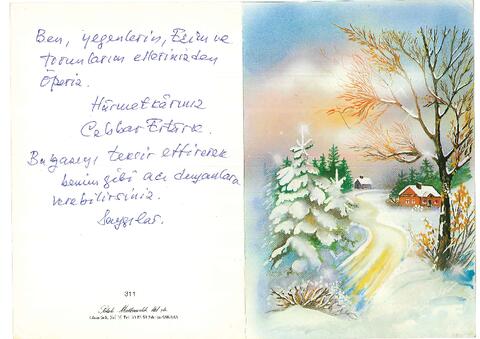 Ben, yegenlerin, Eşim ve
torunlarım ellerinizden
Öperiz.
Hürmetkârınız
Cabbar Ertürk.
Bu yazıyı teksir ettirerek
benim gibi acı duyanlara
verebilirsiniz.
Saygılar.
311